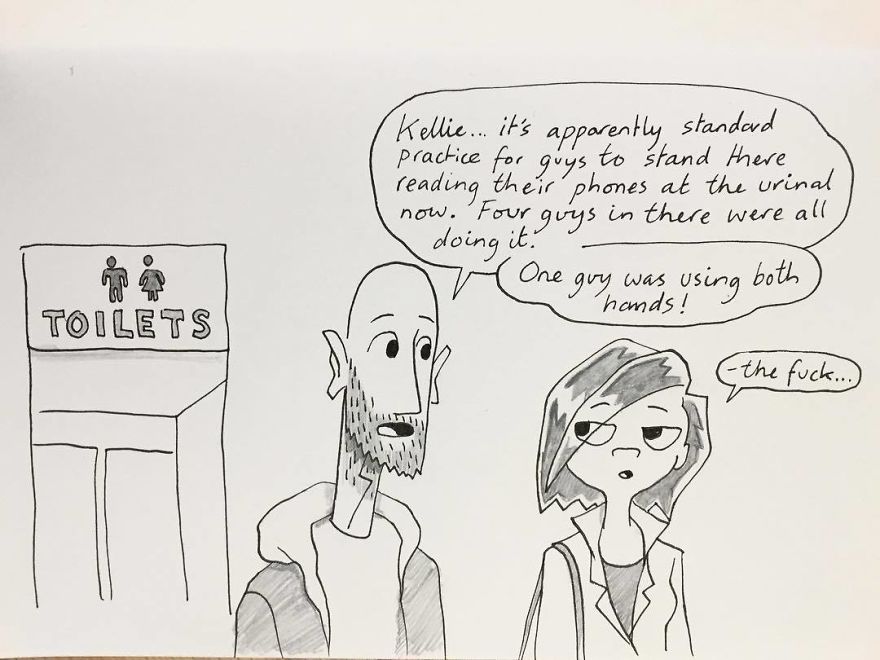 Kellie... it's apparently standard
practice for guys to stand there
reading their phones at the urinal
now. Four guys in there were all
doing it.
One guy was using both
hands!
-the fuck...
TOILETS